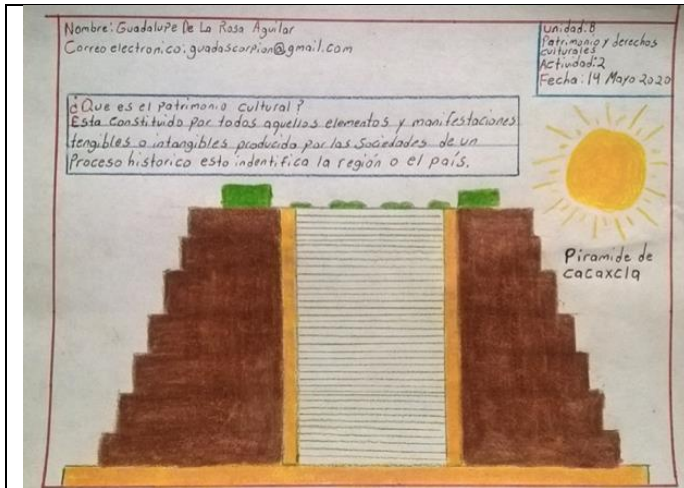 Nombre: Guadalupe De La Rosa Aguilar
Correo electronico: guadascorpion@gmail.com
Unidad: 8
Patrimonio y derechos
culturales
Actividad: 2
Fecha: 14 Mayo 2020
¿Que es el patrimonio cultural?
Esta constituido por todos aquellos elementos y manifestaciones
tengibles o intangibles producida por las sociedades de un
Proceso historico esto indentifica la región o el país.
Piramide de
cacaxcla